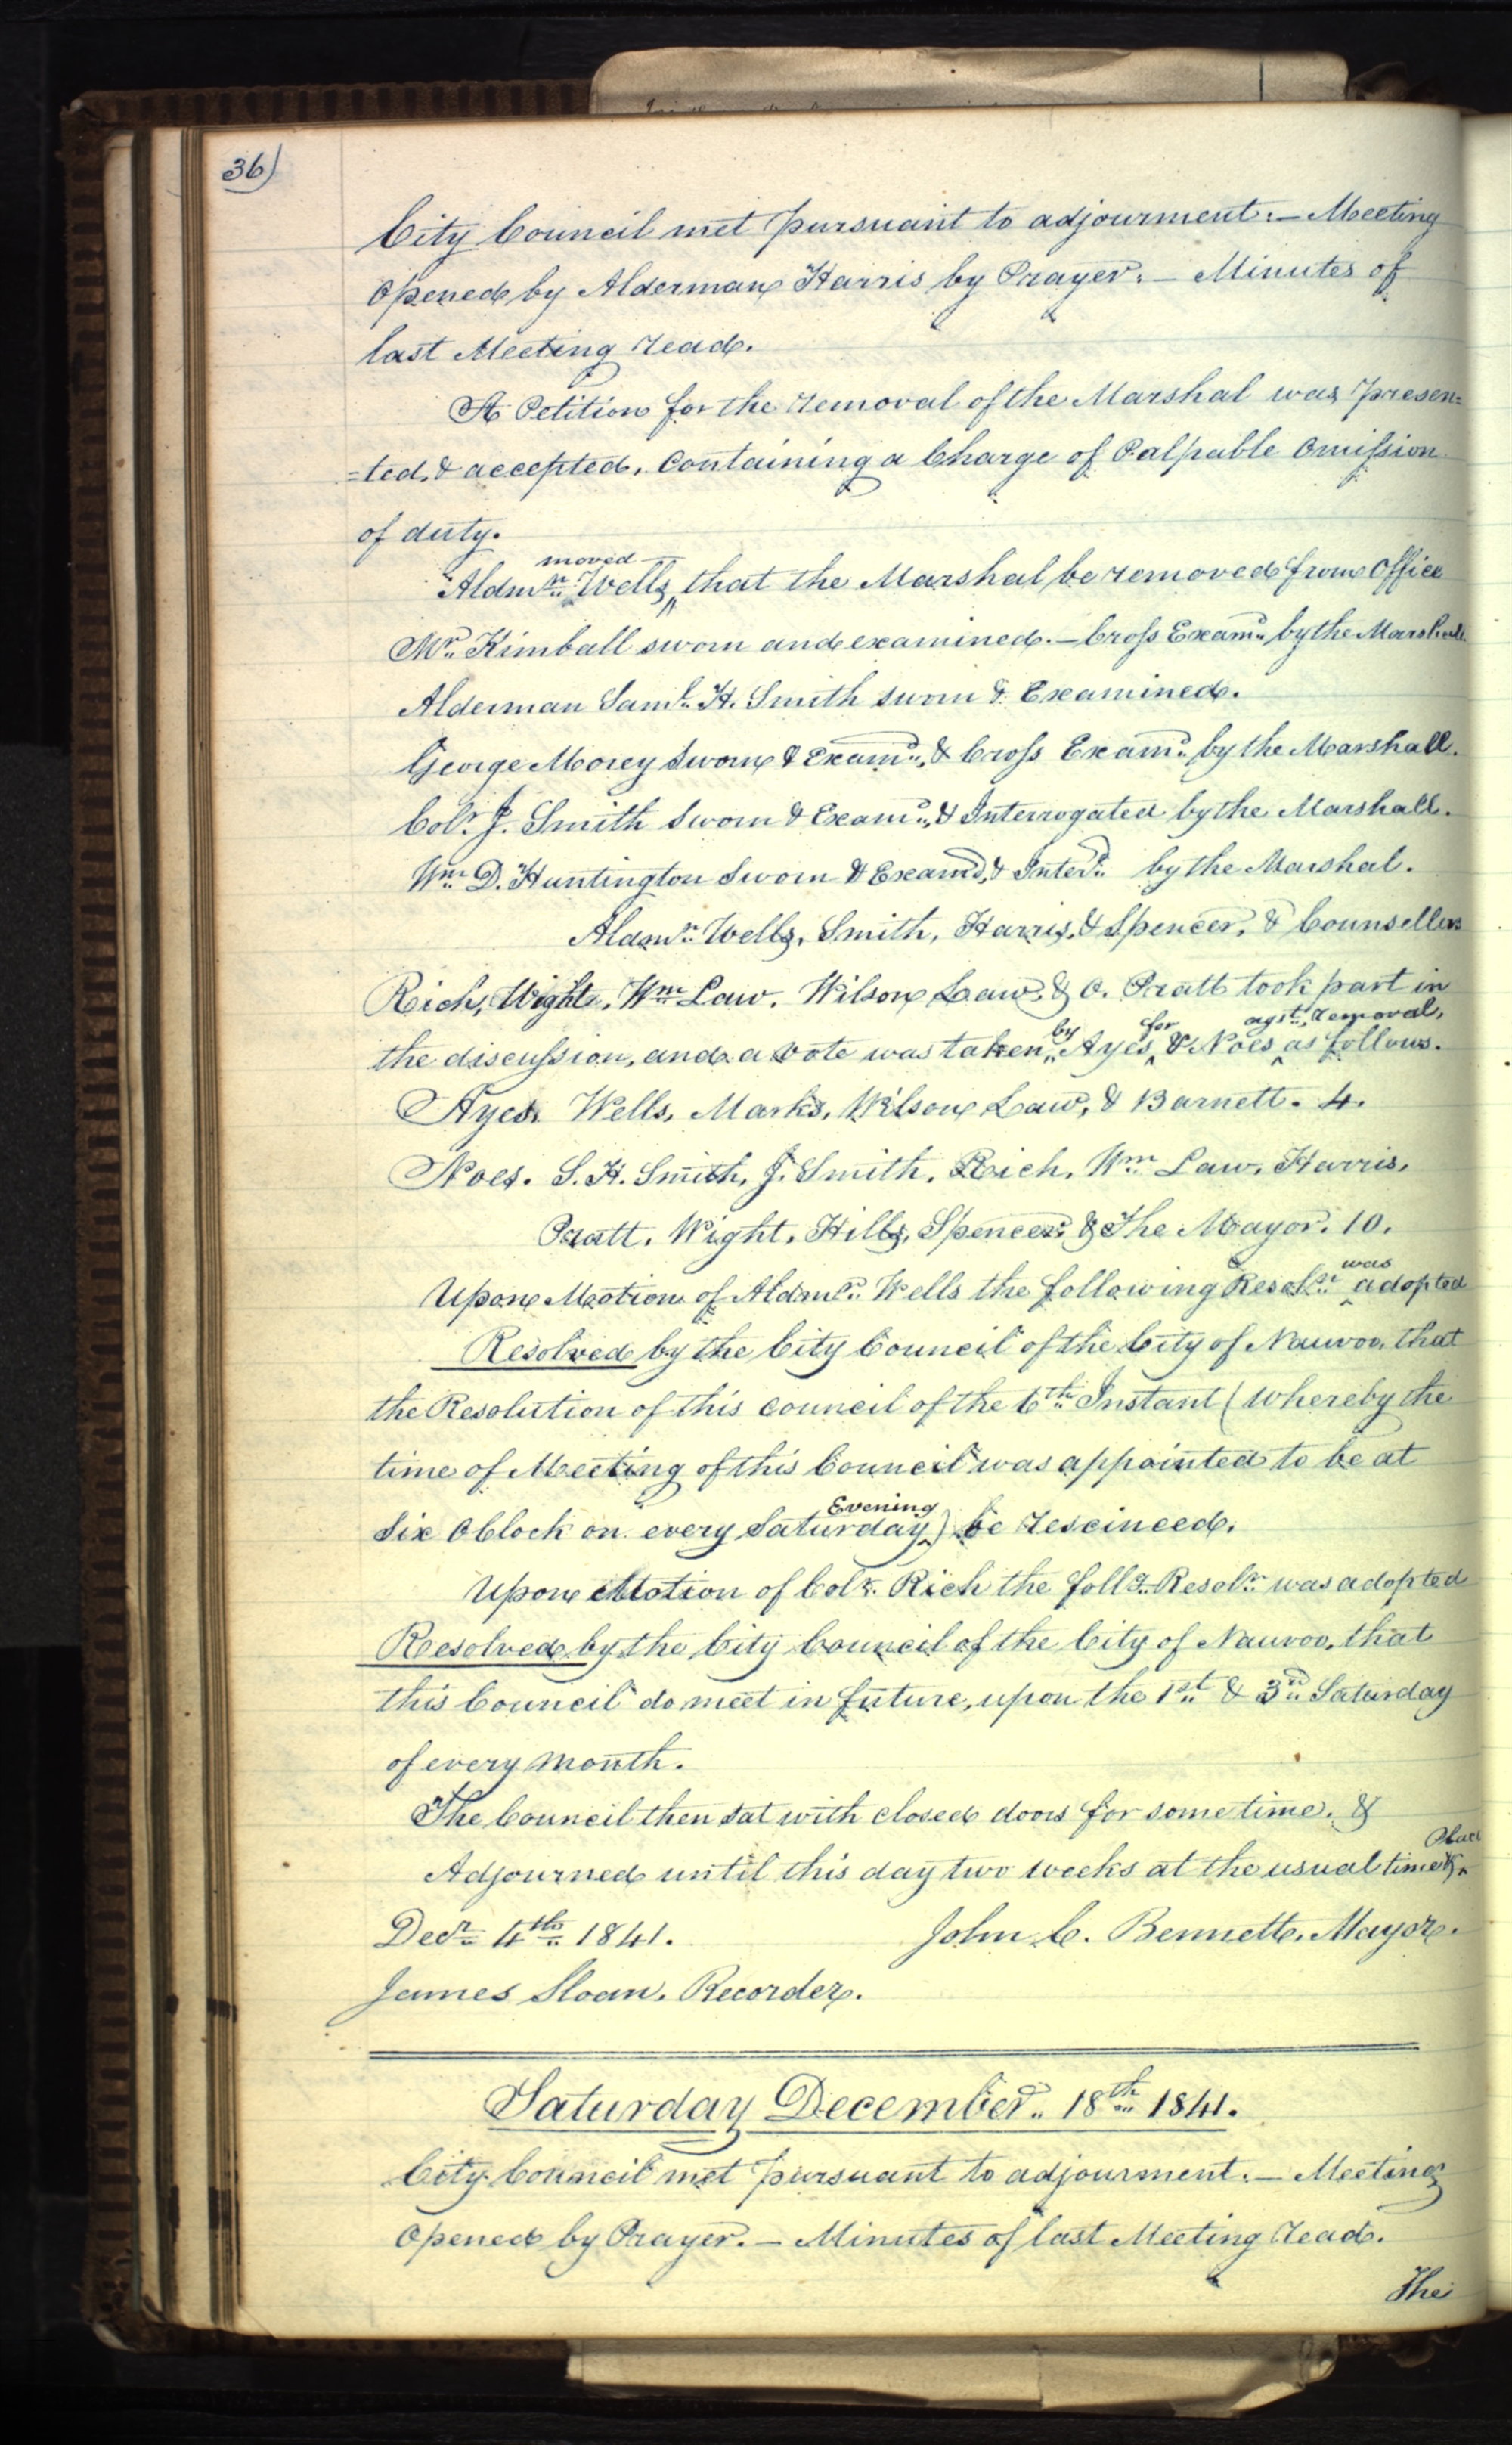 36)
City Council met pursuant to adjourment:— Meeting
Opened by Alderman Harris by Prayer.— Minutes of
last Meeting read.
A Petition for the removal of the Marshal was presen=
=ted, & accepted, containing a Charge of Palpable Omission
of duty.
moved
Aldmn. Wells, that the Marshal be removed from Office
Mr. Kimball sworn and examined.— Cross Examd. by the Marshall
Alderman Saml. H. Smith sworn & Examined.
George Morey Sworn & Examd., & Cross Examd. by the Marshall.
Col. J. Smith Sworn & Examd., & Interrogated by the Marshall.
Wm. D. Huntington Sworn & Examd., & Interd. by the Marshal.
Aldmn. Wells, Smith, Harris, & Spencer, & Counsellors
Rich, Wight, Wm. Law, Wilson Law, & O. Pratt took part in
by for agst. removal,
the discussion, and a vote was taken, Ayes & Noes as follows.
Ayes. Wells, Marks, Wilson Law, & Barnett. 4.
Noes. S. H. Smith, J. Smith, Rich, Wm. Law, Harris,
Pratt, Wight, Hills, Spencer, & The Mayor. 10.
was
Upon Motion of Aldmn. Wells the following Resoln. adopted
Resolved by the City Council of the City of Nauvoo, that
the Resolution of this council of the 6th. Instant (whereby the
time of Meeting of this Council was appointed to be at
Evening
Six OClock on every Saturday) be resceinded.
Upon Motion of Colr. Rich the follg. Resoln. was adopted
Resolved by the City Council of the City of Nauvoo, that
this Council do meet in future, upon the 1st. & 3rd. Saturday
of every month.
The Council then sat with closed doors for some time, &
Place
Adjourned until this day two weeks at the usual time &
Decr. 4th. 1841. John C. Bennett, Mayor.
James Sloan, Recorder.
Saturday December. 18th. 1841.
City Council met pursuant to adjourment.— Meeting
Opened by Prayer.— Minutes of last Meeting read.
The